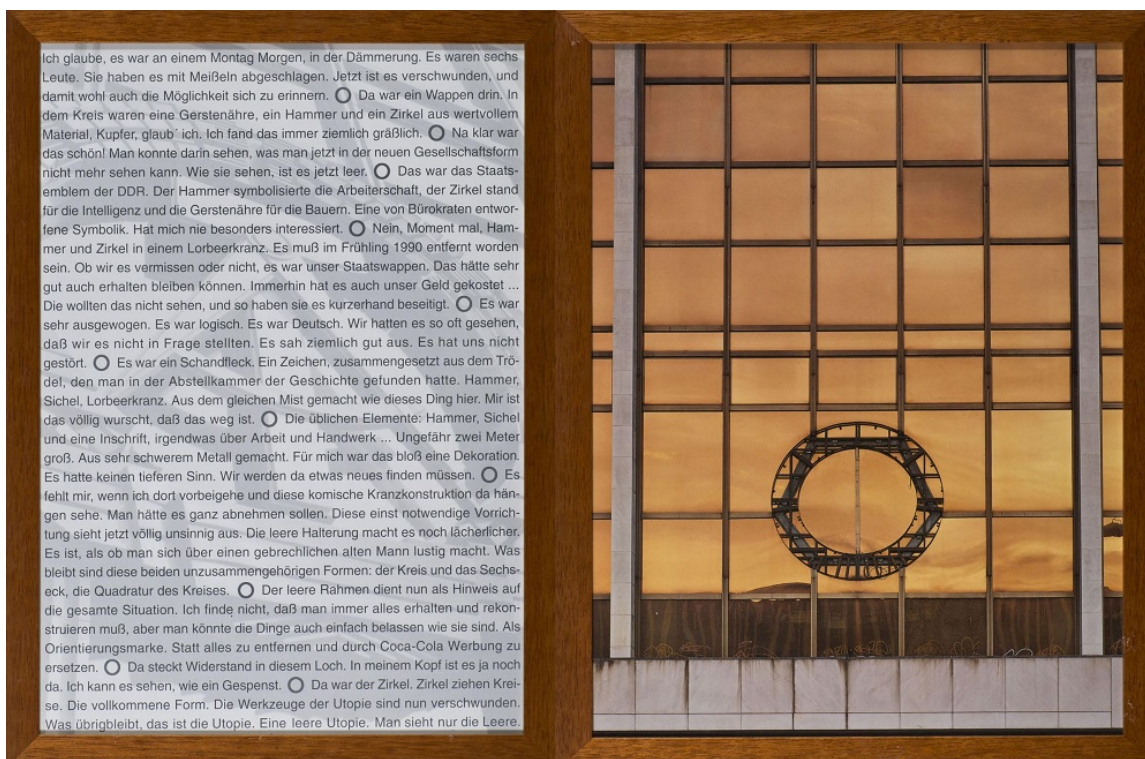 Ich glaube, es war an einem Montag Morgen, in der Dämmerung. Es waren sechs
Leute. Sie haben es mit Meißeln abgeschlagen. Jetzt ist es verschwunden, und
damit wohl auch die Möglichkeit sich zu erinnern. O Da war ein Wappen drin. In
dem Kreis waren eine Gerstenähre, ein Hammer und ein Zirkel aus wertvollem
Material, Kupfer, glaub´ ich. Ich fand das immer ziemlich gräßlich. O Na klar war
das schön! Man konnte darin sehen, was man jetzt in der neuen Gesellschaftsform
nicht mehr sehen kann. Wie sie sehen, ist es jetzt leer. O Das war das Staats-
emblem der DDR. Der Hammer symbolisierte die Arbeiterschaft, der Zirkel stand
für die Intelligenz und die Gerstenähre für die Bauern. Eine von Bürokraten entwor-
fene Symbolik. Hat mich nie besonders interessiert. O Nein, Moment mal, Ham-
mer und Zirkel in einem Lorbeerkranz. Es muß im Frühling 1990 entfernt worden
sein. Ob wir es vermissen oder nicht, es war unser Staatswappen. Das hätte sehr
gut auch erhalten bleiben können. Immerhin hat es auch unser Geld gekostet ...
Die wollten das nicht sehen, und so haben sie es kurzerhand beseitigt. O Es war
sehr ausgewogen. Es war logisch. Es war Deutsch. Wir hatten es so oft gesehen,
daß wir es nicht in Frage stellten. Es sah ziemlich gut aus. Es hat uns nicht
gestört. O Es war ein Schandfleck. Ein Zeichen, zusammengesetzt aus dem Trö-
del, den man in der Abstellkammer der Geschichte gefunden hatte. Hammer,
Sichel, Lorbeerkranz. Aus dem gleichen Mist gemacht wie dieses Ding hier. Mir ist
das völlig wurscht, daß das weg ist. O Die üblichen Elemente: Hammer, Sichel
und eine Inschrift, irgendwas über Arbeit und Handwerk ... Ungefähr zwei Meter
groß. Aus sehr schwerem Metall gemacht. Für mich war das bloß eine Dekoration.
Es hatte keinen tieferen Sinn. Wir werden da etwas neues finden müssen. O Es
fehlt mir, wenn ich dort vorbeigehe und diese komische Kranzkonstruktion da hän-
gen sehe. Man hätte es ganz abnehmen sollen. Diese einst notwendige Vorrich-
tung sieht jetzt völlig unsinnig aus. Die leere Halterung macht es noch lächerlicher.
Es ist, als ob man sich über einen gebrechlichen alten Mann lustig macht. Was
bleibt sind diese beiden unzusammengehörigen Formen: der Kreis und das Sechs-
eck, die Quadratur des Kreises. O Der leere Rahmen dient nun als Hinweis auf
die gesamte Situation. Ich finde nicht, daß man immer alles erhalten und rekon-
struieren muß, aber man könnte die Dinge auch einfach belassen wie sie sind. Als
Orientierungsmarke. Statt alles zu entfernen und durch Coca-Cola Werbung zu
ersetzen. O Da steckt Widerstand in diesem Loch. In meinem Kopf ist es ja noch
da. Ich kann es sehen, wie ein Gespenst. O Da war der Zirkel. Zirkel ziehen Krei-
se. Die vollkommene Form. Die Werkzeuge der Utopie sind nun verschwunden.
Was übrigbleibt, das ist die Utopie. Eine leere Utopie. Man sieht nur die Leere.